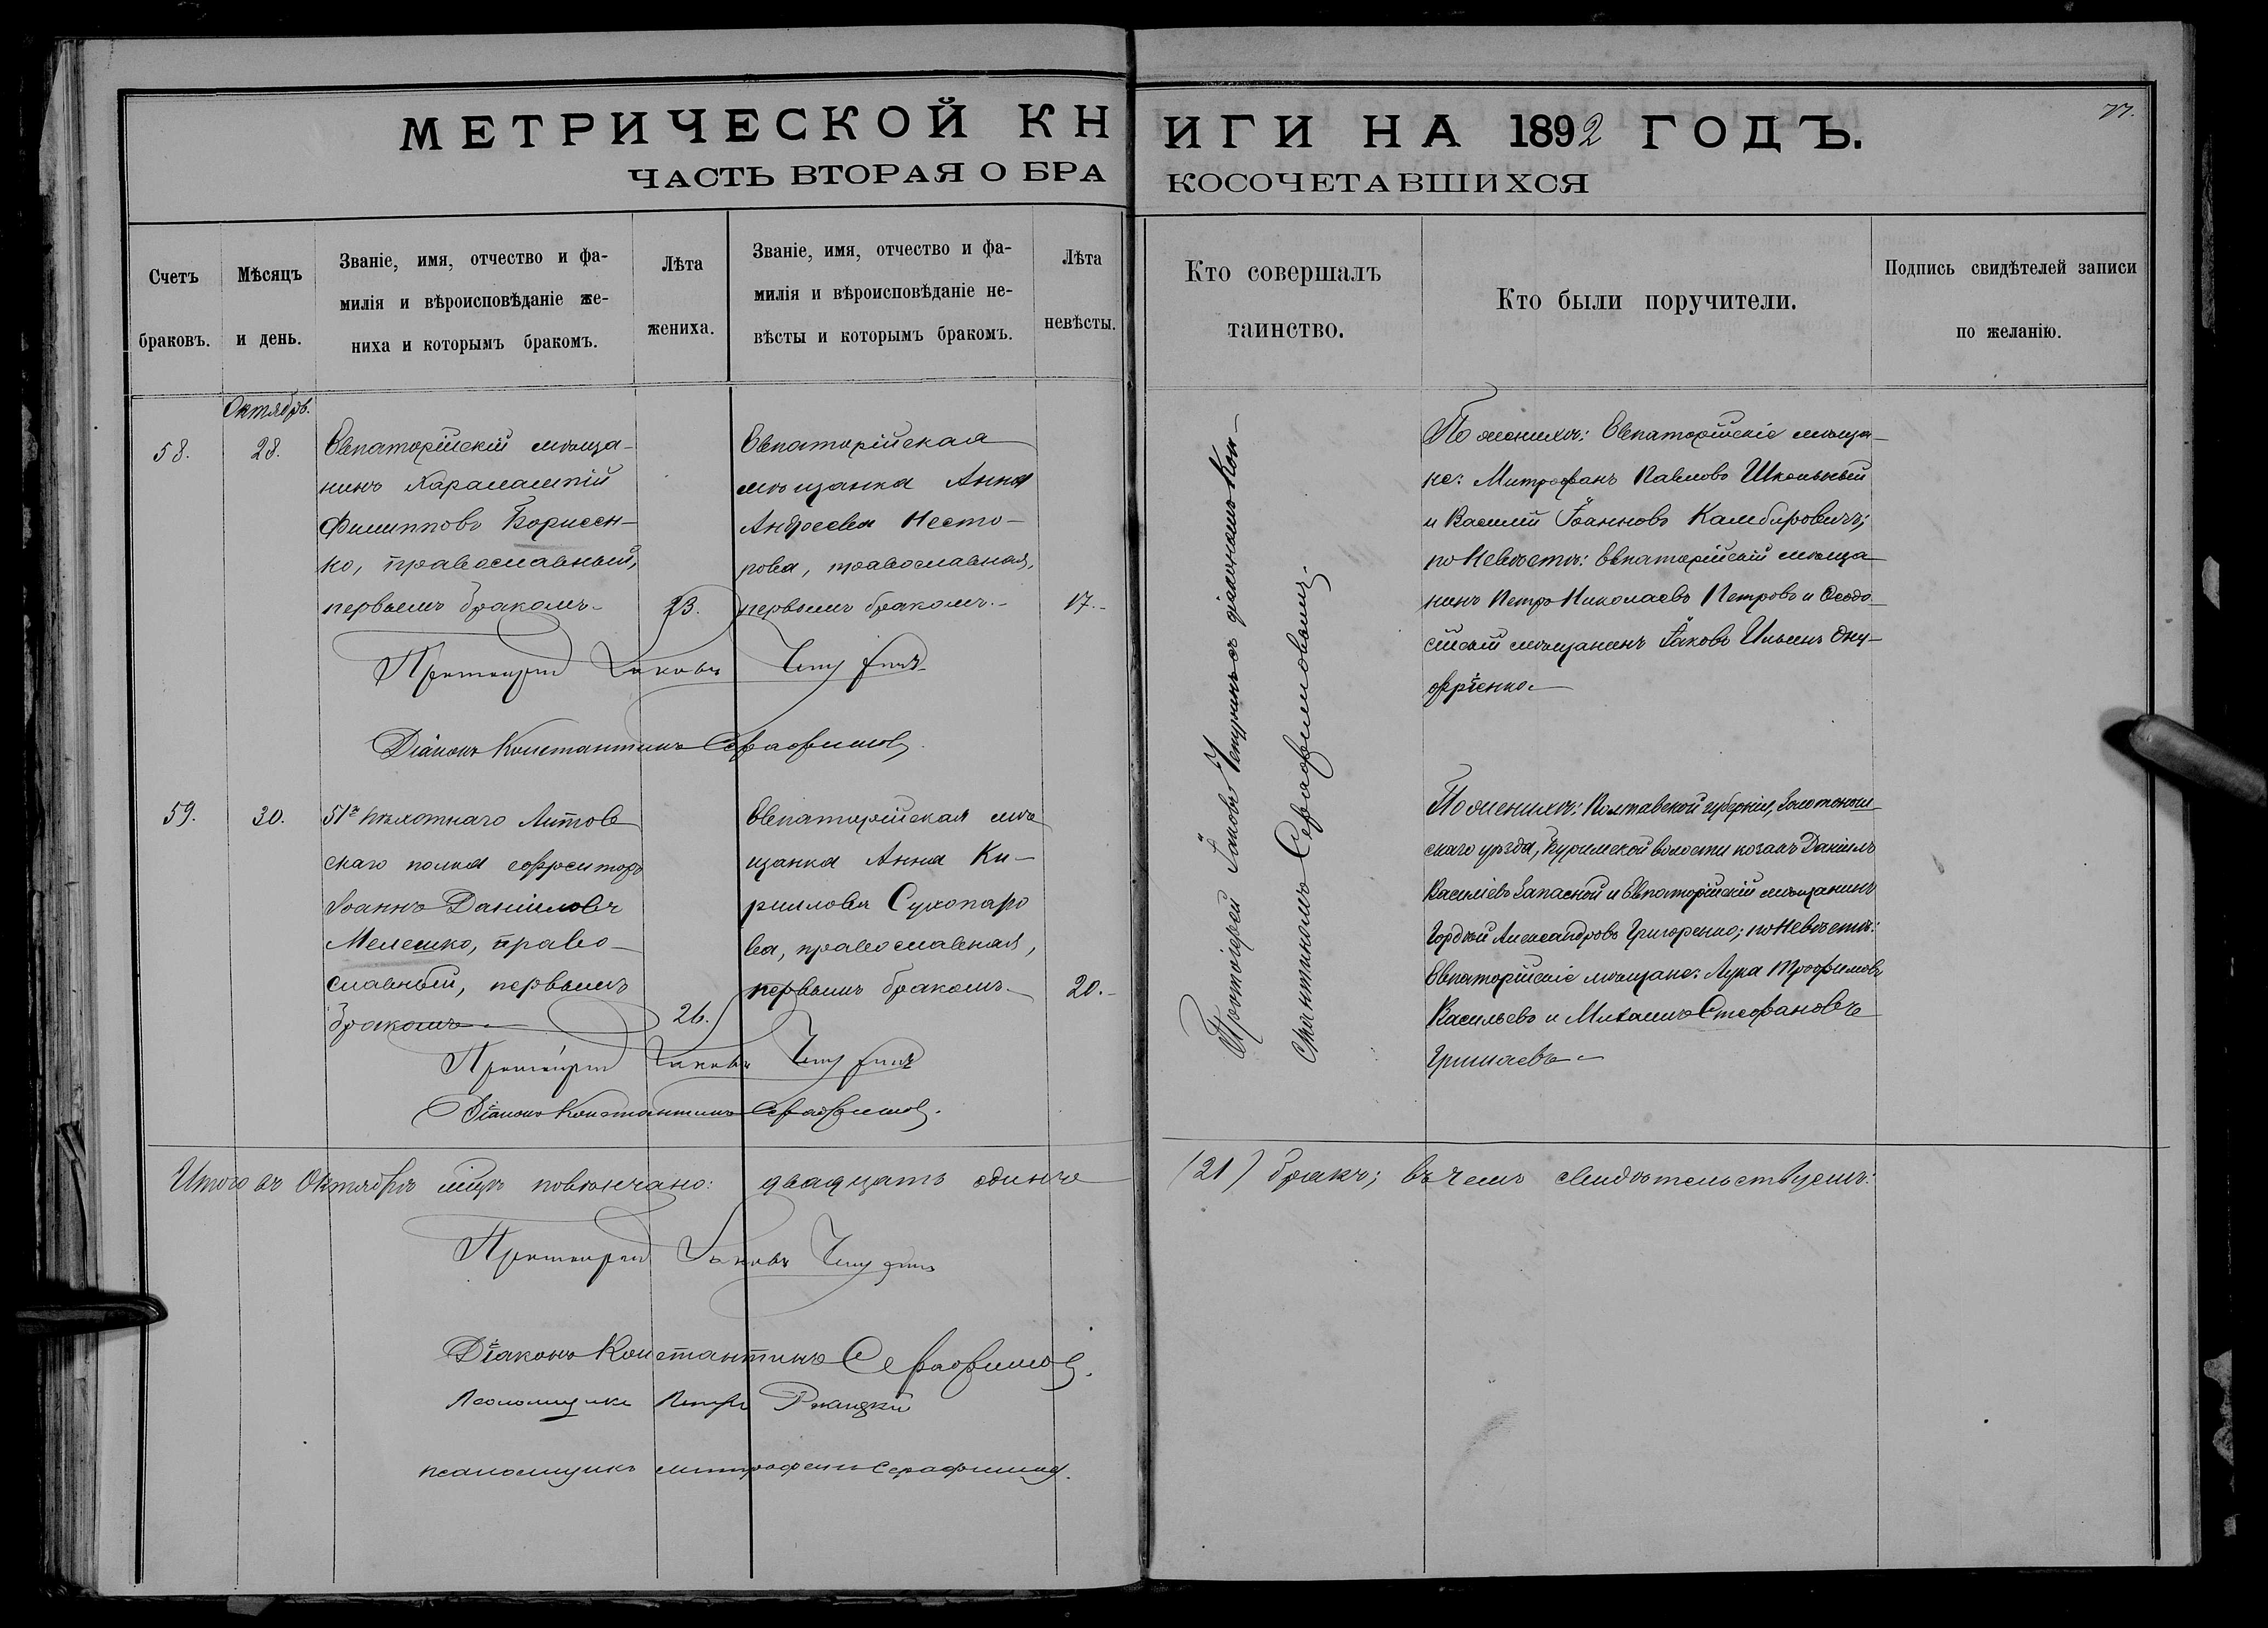 МЕТРИЧЕСКОЙ КНИГИ НА 1892 ГОДЪ.
77.
ЧАСТЬ ВТОРАЯ О БРАКОСОЧЕТАВШИХСЯ
Счетъ браковъ.
Мѣсяцъ и день.
Званіе, имя, отчество и фа-
милія и вѣроисповѣданіе же-
ниха и которымъ бракомъ.
Лѣта жениха.
Званіе, имя, отчество и фа-
милія и вѣроисповѣданіе не-
вѣсты и которымъ бракомъ.
Лѣта невѣсты.
Кто совершалъ
таинство.
Кто были поручители.
Подпись свидѣтелей записи
по желанію.
Октябрь.
58.
28.
Евпаторійскій мѣща-
нинъ Харалампій
Филипповъ Борисен-
ко, православный,
первымъ бракомъ.
23.
Евпаторійская
мѣщанка Анна
Андреева Несто-
рова, православная,
первымъ бракомъ.
17.
Протоіерей Іаковъ Чепуринъ
Діаконъ Константинъ Серафимовъ.
Протоіерей Іаковъ Чепуринъ съ діакономъ Кон-
стантиномъ Серафимовымъ.
По женихѣ: Евпаторійскіе мѣща-
не: Митрофанъ Павловъ Школьный
и Василій Іоанновъ Камбировичъ;
по Невѣстѣ: Евпаторійскій мѣща
нинъ Петръ Николаевъ Петровъ и Ѳеодо-
сійскій мѣщанинъ Іаковъ Ильинъ Ону-
фріенко.
59.
30.
51го пѣхотнаго Литов
скаго полка ефрейторъ
Іоаннъ Даніиловъ
Мелешко, право-
славный, первымъ
бракомъ.
26.
Евпаторійская мѣ
щанка Анна Ки-
риллова Сухопаро
ва, православная,
первымъ бракомъ.
20.
Протоіерей Іаковъ Чепуринъ
Діаконъ Константинъ Серафимовъ.
По женихѣ: Полтавской губерніи, Золотонош-
скаго уѣзда, волости козакъ Даніилъ
Василіевъ Запасной и Евпаторійскій мѣщанинъ
Гордѣй Александровъ Григоренко; по Невѣстѣ:
Евпаторійскіе мѣщане: Лука Трофимовъ
Васильевъ и Михаилъ Стефановъ
Итого въ Октябрѣ мѣцѣ повѣнчано: двадцать одинъ (21) бракъ; въ чемъ свидѣтельствуемъ:
Протоіерей Іаковъ Чепуринъ
Діаконъ Константинъ Серафимовъ.
Псаломщикъ Петръ
Псаломщикъ Митрофанъ Серафимовъ.